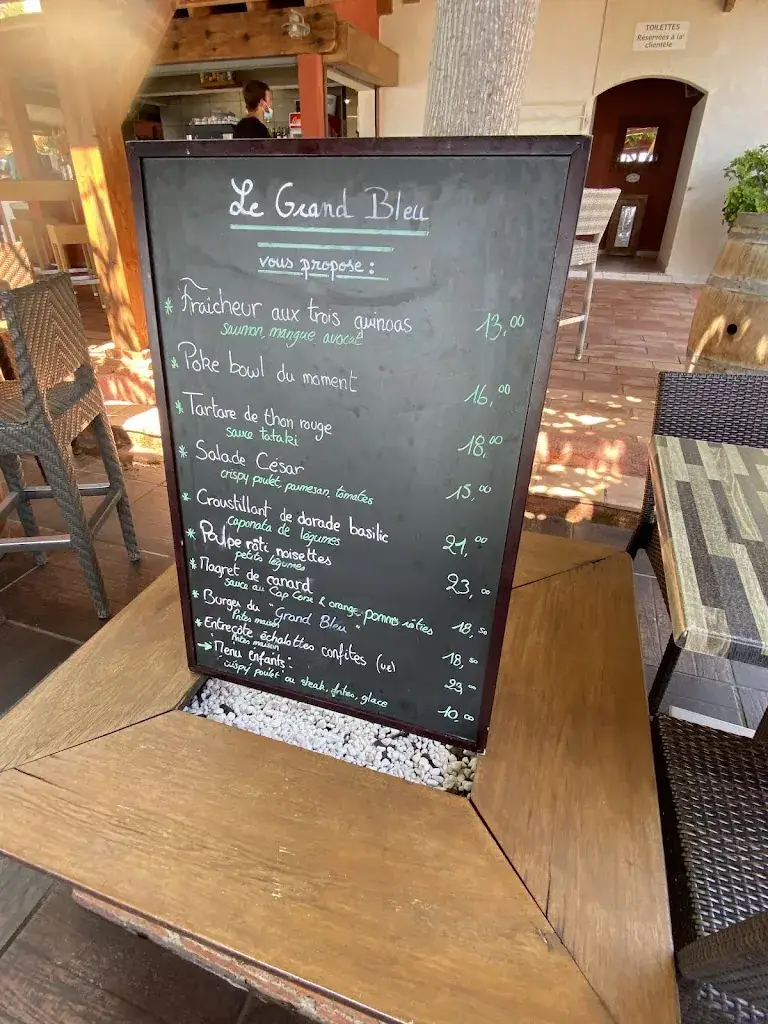 TOILETTES
Réservées à la
clientèle
Le Grand Bleu
vous propose :
* Fraîcheur aux trois quinoas 13,00
saumon, mangue, avocat
* Poke bowl du moment 16,00
* Tartare de thon rouge 18,00
sauce tataki
* Salade César 15,00
crispy poulet, parmesan, tomates
* Croustillant de dorade basilic 21,00
caponata de légumes
* Poulpe rôti noisettes 23,00
petits légumes
* Magret de canard 18,50
sauce au Cap Corse & orange, pommes rôties
* Burger du "Grand Bleu" 18,50
frites maison
* Entrecôte échalottes confites (UE) 23,00
frites maison
→ Menu enfants : 10,00
crispy poulet ou steak, frites, glace